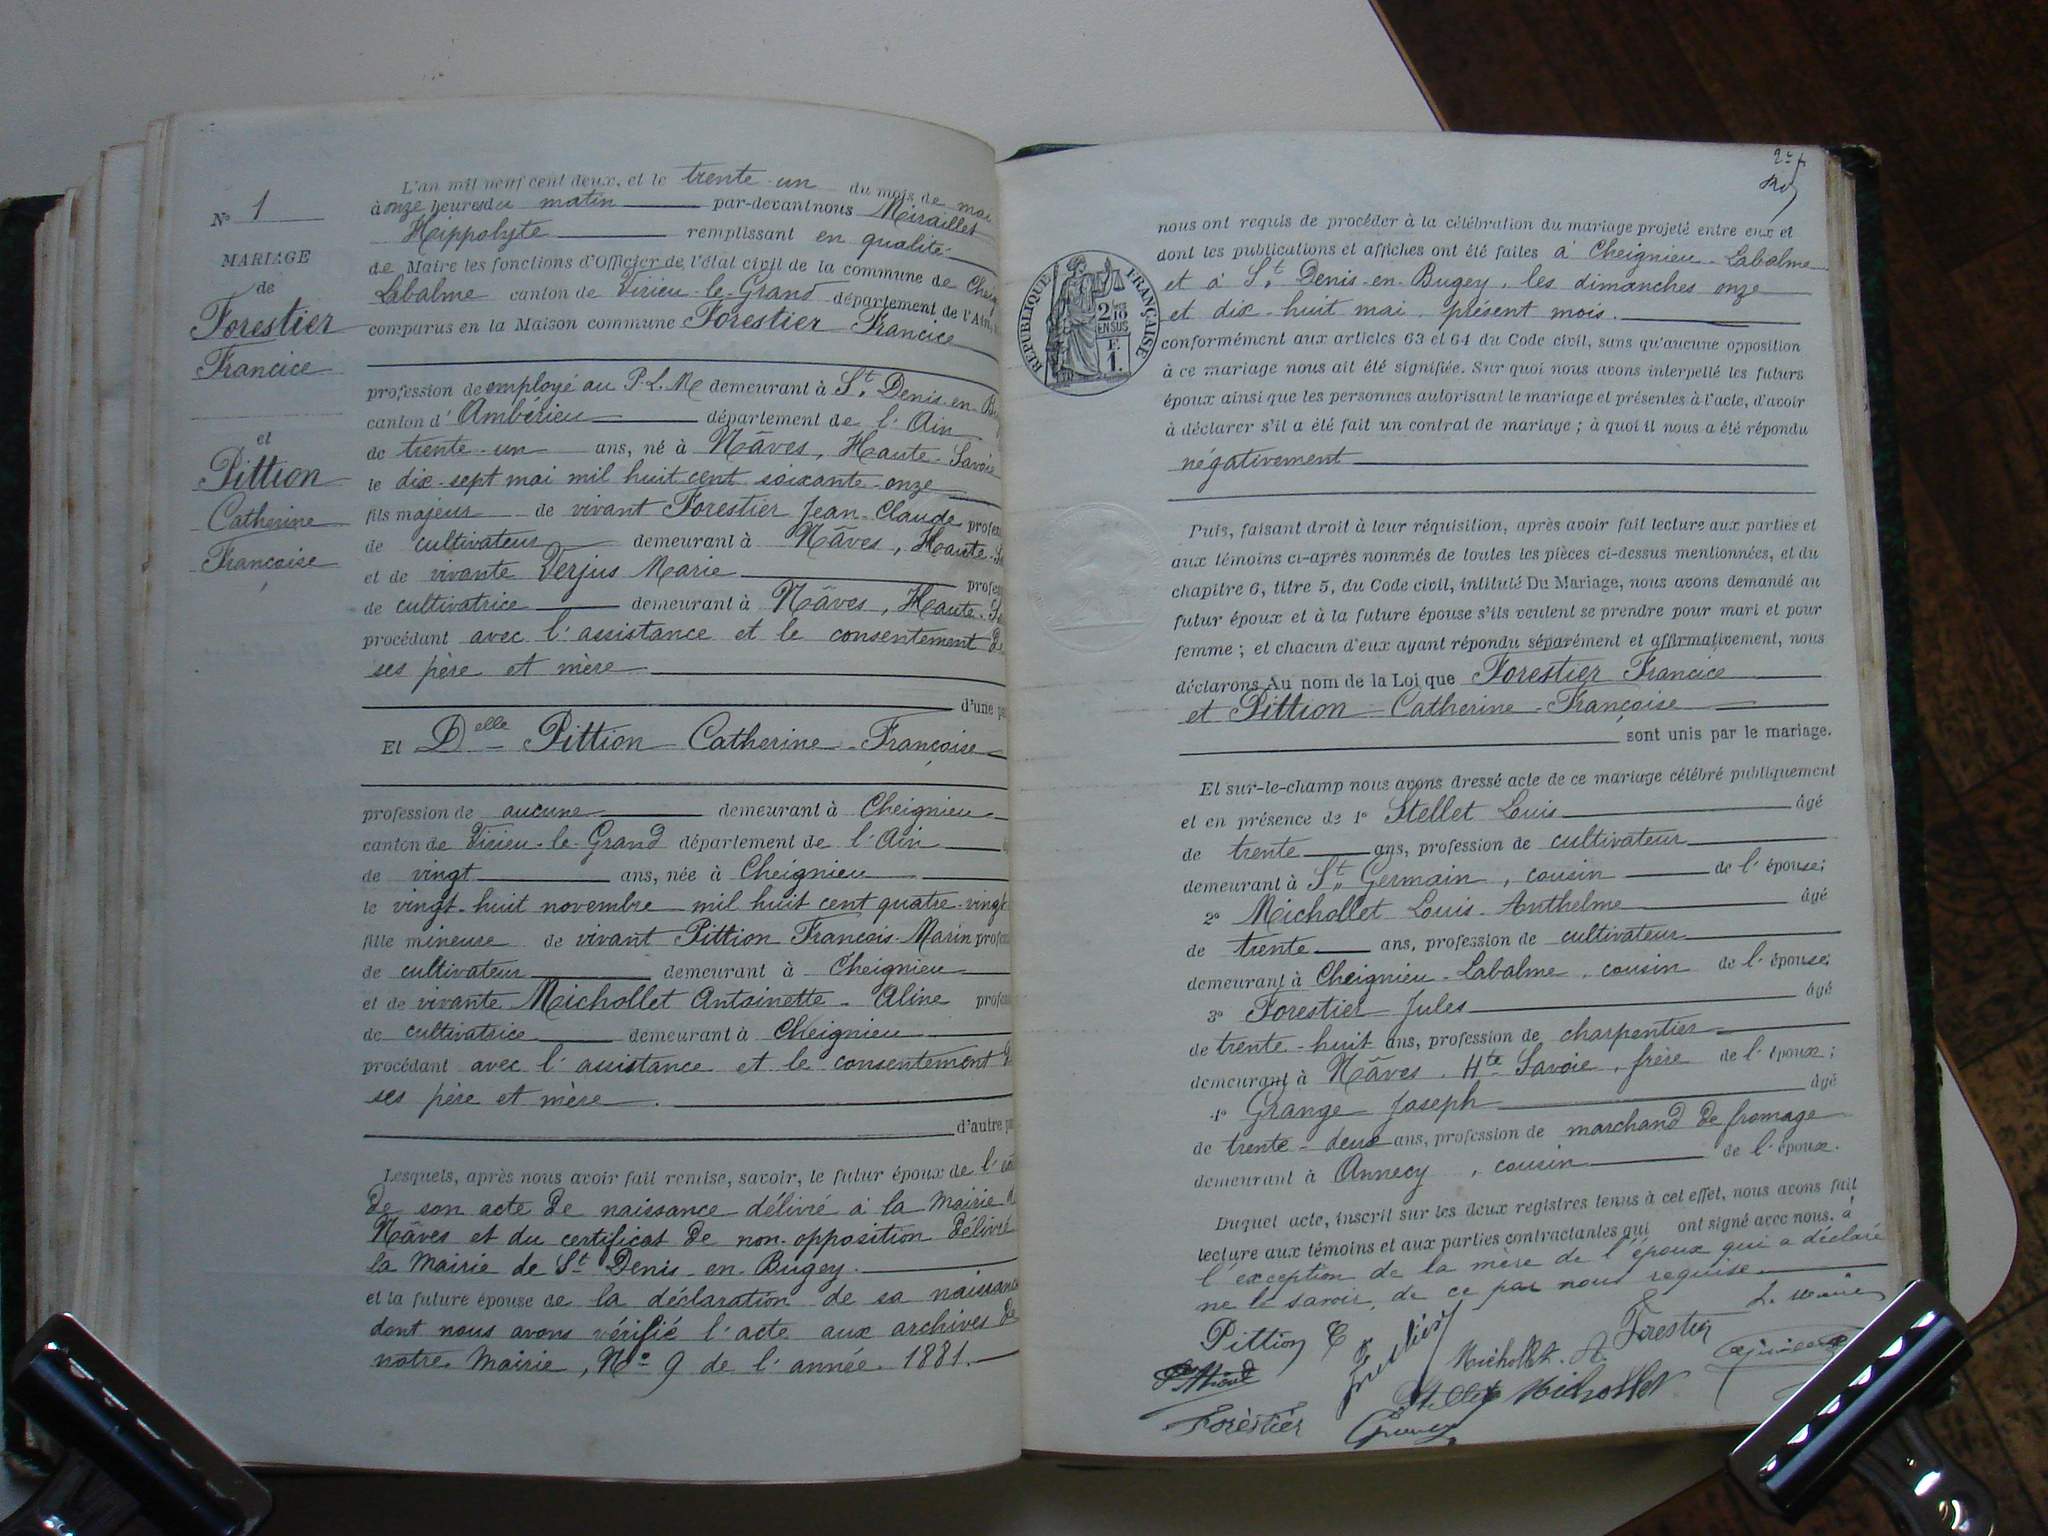 N° 1
MARIAGE
de
Forestier
Francice
et
Pittion
Catherine
Françoise
L'an mil neuf cent deux, et le trente-un du mois de mai
à onze heures du matin par-devant nous Miraillet
Hippolyte remplissant en qualité
de Maire les fonctions d'Officier de l'état civil de la commune de Cheig
Labalme canton de Virieu-le-Grand département de l'Ain,
comparus en la Maison commune Forestier Francice
profession de employé au P.L.M demeurant à St. Denis-en-Bu
canton d'Ambérieu département de l'Ain
de trente-un ans, né à Nâves, Haute-Savoie
le dix-sept mai mil huit cent soixante-onze
fils majeur de vivant Forestier Jean-Claude profes
de cultivateur demeurant à Nâves, Haute-S
et de vivante Verjus Marie profes
de cultivatrice demeurant à Nâves, Haute-S
procédant avec l'assistance et le consentement de
ses père et mère
d'une pa
Et Delle Pittion Catherine-Françoise
profession de aucune demeurant à Cheignieu
canton de Virieu-le-Grand département de l'Ain
de vingt ans, née à Cheignieu
le vingt-huit novembre mil huit cent quatre-vingt
fille mineure de vivant Pittion François-Marin profes
de cultivateur demeurant à Cheignieu
et de vivante Michollet Antoinette-Aline profes
de cultivatrice demeurant à Cheignieu
procédant avec l'assistance et le consentement d
ses père et mère.
d'autre pa
Lesquels, après nous avoir fait remise, savoir, le futur époux de l'
de son acte de naissance délivré à la Mairie d
Nâves et du certificat de non-opposition délivré
la Mairie de St Denis-en-Bugey.
et la future épouse de la déclaration de sa naissance
dont nous avons vérifié l'acte aux archives de
notre Mairie, N° 9 de l'année 1881.
nous ont requis de procéder à la célébration du mariage projeté entre eux et
dont les publications et affiches ont été faites à Cheignieu-Labalme
et à St. Denis-en-Bugey, les dimanches onze
et dix-huit mai, présent mois.
RÉPUBLIQUE FRANÇAISE
2/10
EN SUS
F.
1.
conformément aux articles 63 et 64 du Code civil, sans qu'aucune opposition
à ce mariage nous ait été signifiée. Sur quoi nous avons interpellé les futurs
époux ainsi que les personnes autorisant le mariage et présentes à l'acte, d'avoir
à déclarer s'il a été fait un contrat de mariage ; à quoi il nous a été répondu
négativement
Puis, faisant droit à leur réquisition, après avoir fait lecture aux parties et
aux témoins ci-après nommés de toutes les pièces ci-dessus mentionnées, et du
chapitre 6, titre 5, du Code civil, intitulé Du Mariage, nous avons demandé au
futur époux et à la future épouse s'ils veulent se prendre pour mari et pour
femme ; et chacun d'eux ayant répondu séparément et affirmativement, nous
déclarons Au nom de la Loi que Forestier Francice
et Pittion Catherine-Françoise
sont unis par le mariage.
Et sur-le-champ nous avons dressé acte de ce mariage célébré publiquement
et en présence de 1° Stellet Louis âgé
de trente ans, profession de cultivateur
demeurant à St. Germain, cousin de l'épouse;
2° Michollet Louis-Anthelme âgé
de trente ans, profession de cultivateur
demeurant à Cheignieu-Labalme, cousin de l'épouse;
3° Forestier Jules âgé
de trente-huit ans, profession de charpentier
demeurant à Nâves, Hte Savoie, frère de l'époux;
4° Grange Joseph âgé
de trente-deux ans, profession de marchand de fromage
demeurant à Annecy, cousin de l'époux.
Duquel acte, inscrit sur les deux registres tenus à cet effet, nous avons fait
lecture aux témoins et aux parties contractantes qui ont signé avec nous, à
l'exception de la mère de l'époux qui a déclaré
ne le savoir, de ce par nous requise.
Pittion C
Forestier
Michollet A.
Forestier
Le maire
Pittion
Stellet
Michollet
Forestier